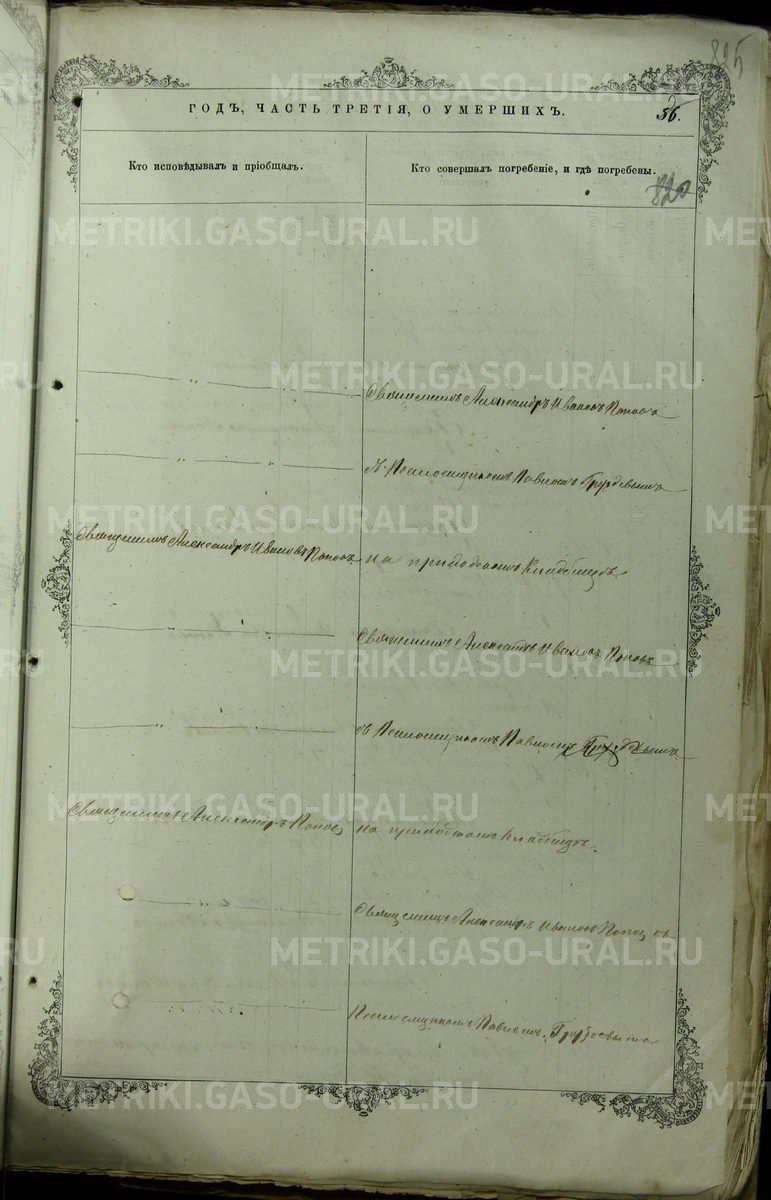 825
ГОДЪ, ЧАСТЬ ТРЕТІЯ, О УМЕРШИХЪ.
56.
Кто исповѣдывалъ и пріобщалъ.
Кто совершалъ погребеніе, и гдѣ погребены.
820
Священникъ Александръ Ивановъ Поповъ
Псаломщикомъ Павломъ Груздевымъ
Священникъ Александръ Ивановъ Поповъ
на приходскомъ кладбищѣ.
Священникъ Александръ Ивановъ Поповъ
съ Псаломщикомъ Павломъ Груздевымъ
Священникъ Александръ Поповъ
на приходскомъ кладбищѣ.
Священникъ Александръ Ивановъ Поповъ съ
Псаломщикомъ Павломъ Груздевымъ
METRIKI.GASO-URAL.RU